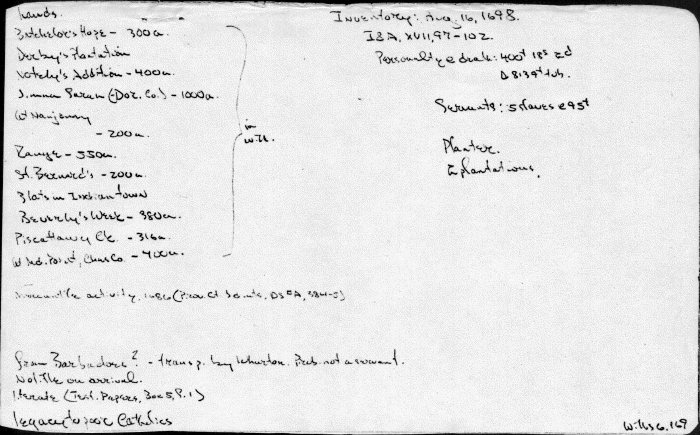 Lands.
Batchelor's Hope - 300a.
Derby's Plantation
Notely's Addition - 400a.
(Dor. Co.) - 1000a
at Nanjemy
- 200a.
Range - 550a.
St. Bernard's - 200a.
3 lots in Indiantown
Beverly's Week - 380a.
Piscattaway Ck. - 316a.
at Ind. Point, Chas Co. - 400a.
in will
Inventory: Aug. 16, 1698.
I&A, XVII, 97-102.
Personalty @ death: 400£ 18s 2d
Servants: 5 slaves @ 95£
Planter.
2 plantations.
Mercantile activity, 1686 (Prov. Ct. Judments, DS#A, 384-5)
from Barbadoes? - transp. by Wharton. Prob. not a servant.
No title on arrival.
literate (Test. Papers, Box 5, F. 1)
legacy to poor Catholics
Wills 6, 169